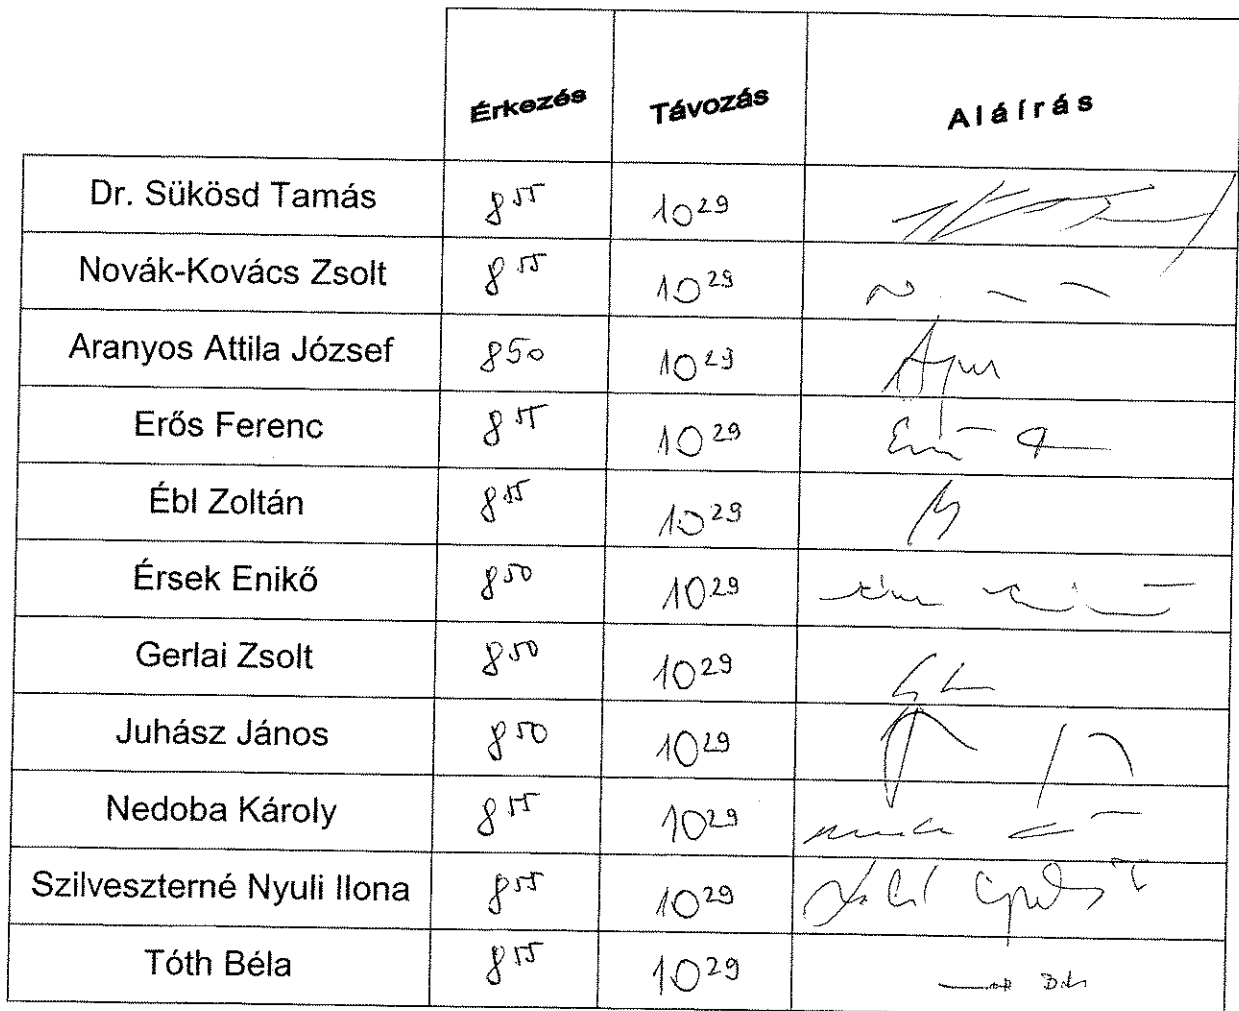 Érkezés Távozás Aláírás
Dr. Sükösd Tamás 8 55 10 29
Novák-Kovács Zsolt 8 55 10 29
Aranyos Attila József 8 50 10 29
Erős Ferenc 8 55 10 29
Ébl Zoltán 8 55 10 29
Érsek Enikő 8 50 10 29
Gerlai Zsolt 8 50 10 29
Juhász János 8 50 10 29
Nedoba Károly 8 55 10 29
Szilveszterné Nyuli Ilona 8 55 10 29
Tóth Béla 8 55 10 29